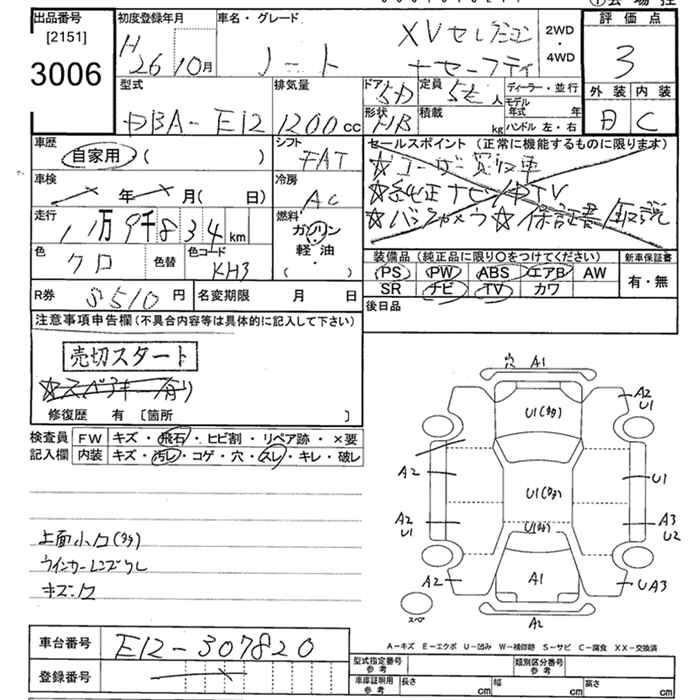 出品番号
[2151]
3006
初度登録年月
H26 10月
車名・グレード
ノート
XVセレクション
+セーフティ
2WD
・
4WD
評価点
3
外装 内装
B C
型式
DBA-E12
排気量
1200cc
ドア 5D
形状 HB
定員 5名 人
積載 kg
ディーラー・並行
モデル年式 年
ハンドル 左・右
車歴
自家用 ( )
シフト
FAT
車検
年 月( 日)
冷房
AC
走行
11万9千834km
燃料
ガソリン
軽・油
( )
色
クロ
色替
色コード
KH3
R券 8510円
名変期限 月 日
セールスポイント (正常に機能するものに限ります)
☆ユーザー買取車
☆純正ナビ/TV
☆バックカメラ☆保証書/取説
装備品 (純正品に限り○をつけてください)
PS PW ABS エアB AW
SR ナビ TV カワ
新車保証書
有・無
後日品
注意事項申告欄(不具合内容等は具体的に記入して下さい)
売切スタート
☆スペアキー有り
修復歴 有 [箇所 ]
検査員
記入欄
FW キズ・飛石・ヒビ割・リペア跡・×要
内装 キズ・汚レ・コゲ・穴・スレ・キレ・破レ
上面小凹(多)
ウインカーレンズクレ
キズ凹
穴 A1
U1(多)
A2
U1
A2
U1
U1(多)
A2
U1
A3
U2
U1(多)
A1
A2
UA3
スペ
A2
A-キズ E-エクボ U-凹み W-補修跡 S-サビ C-腐食 XX-交換済
車台番号 E12-307820
登録番号
型式指定番号
参考
類別区分番号
参考
車庫証明用
参考
長さ cm 幅 cm 高さ cm